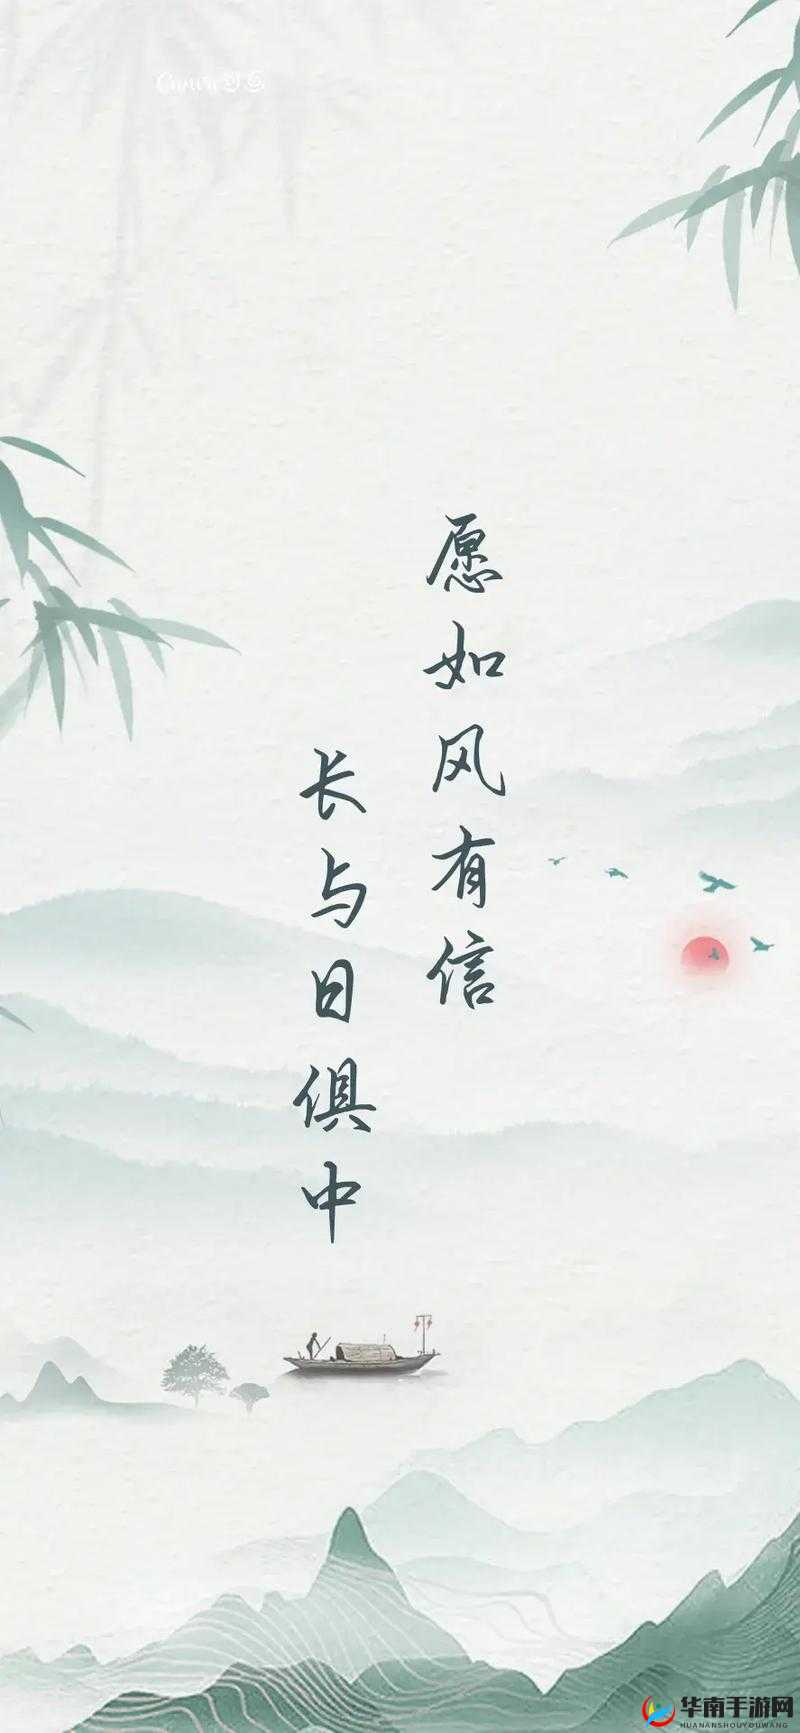 愿如风有信
长与日俱中
华南手游网
HUANANSHOUYOUWANG